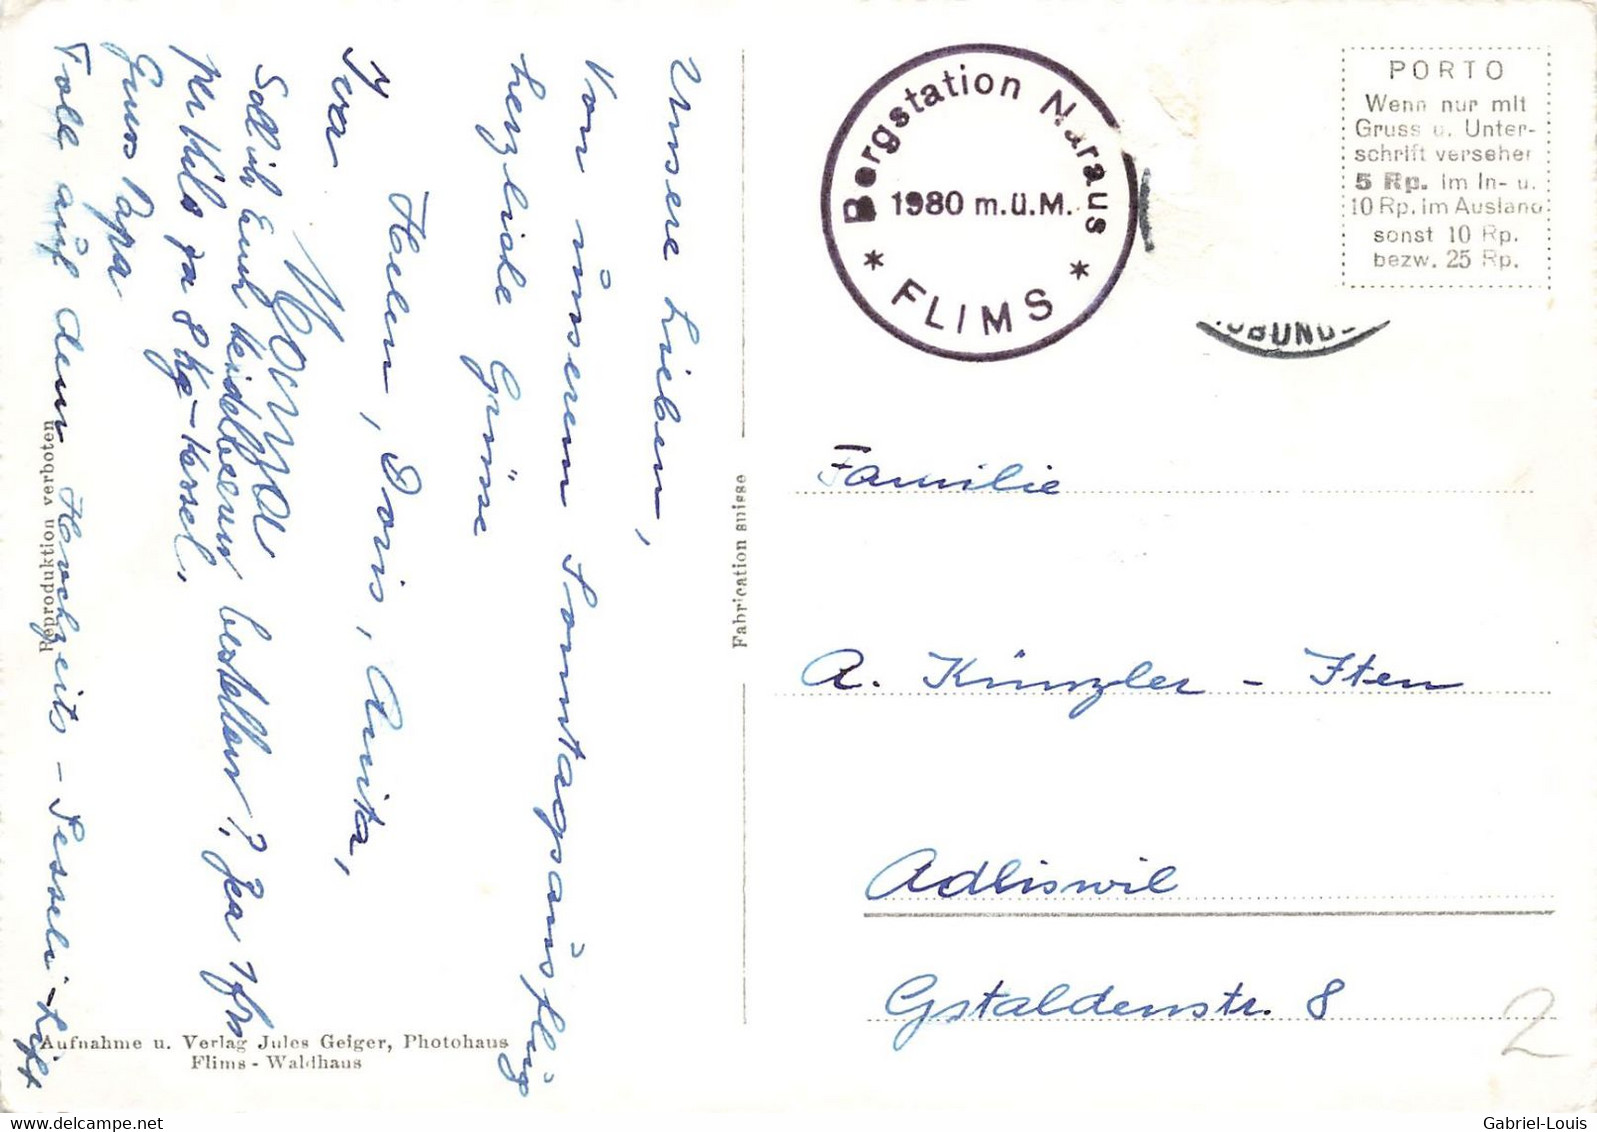 Unsere Lieben,
Von unserem Sonntagsausflug
herzliche Grüsse
Helen, Doris, Anita,
Yera
Soll ich Euch Heidelbeeren bestellen?
per Kilo
8 Kg-Kessel.
Gruss Papa
Toll auf dem Hochzeits-Sesseli-Lift
Reproduktion verboten
Aufnahme u. Verlag Jules Geiger, Photohaus
Flims - Waldhaus
Fabrication suisse
Bergstation Naraus
1980 m.ü.M.
* FLIMS *
PORTO
Wenn nur mit
Gruss u. Unter-
schrift versehen
5 Rp. im In- u.
10 Rp. im Ausland
sonst 10 Rp.
bezw. 25 Rp.
Familie
A. Künzler - Iten
Adliswil
Gstaldenstr. 8
2
Gabriel-Louis